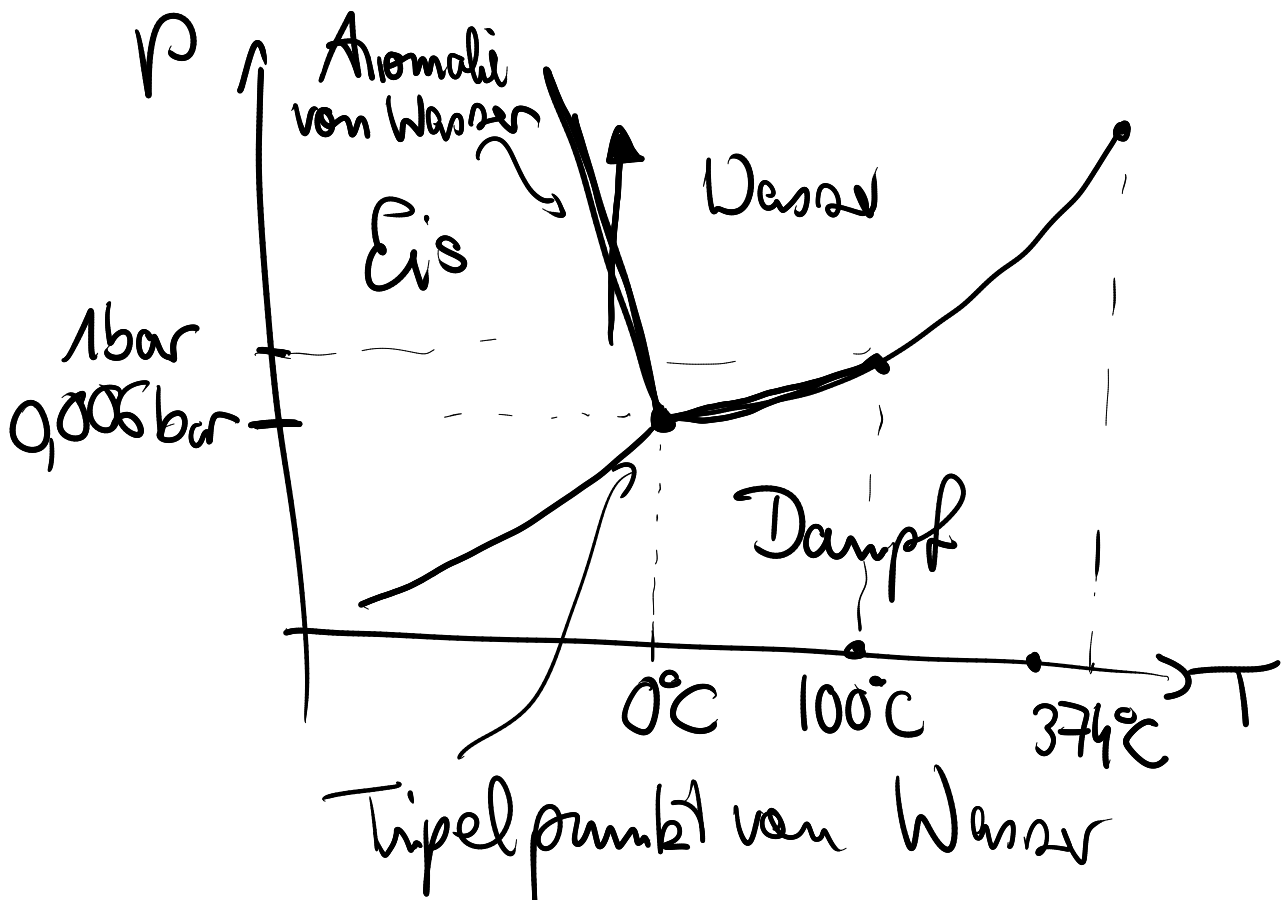 P
Anomalie
von Wasser
Wasser
Eis
1bar
0,006bar
Dampf
0°C
100°C
374°C
T
Tripelpunkt von Wasser